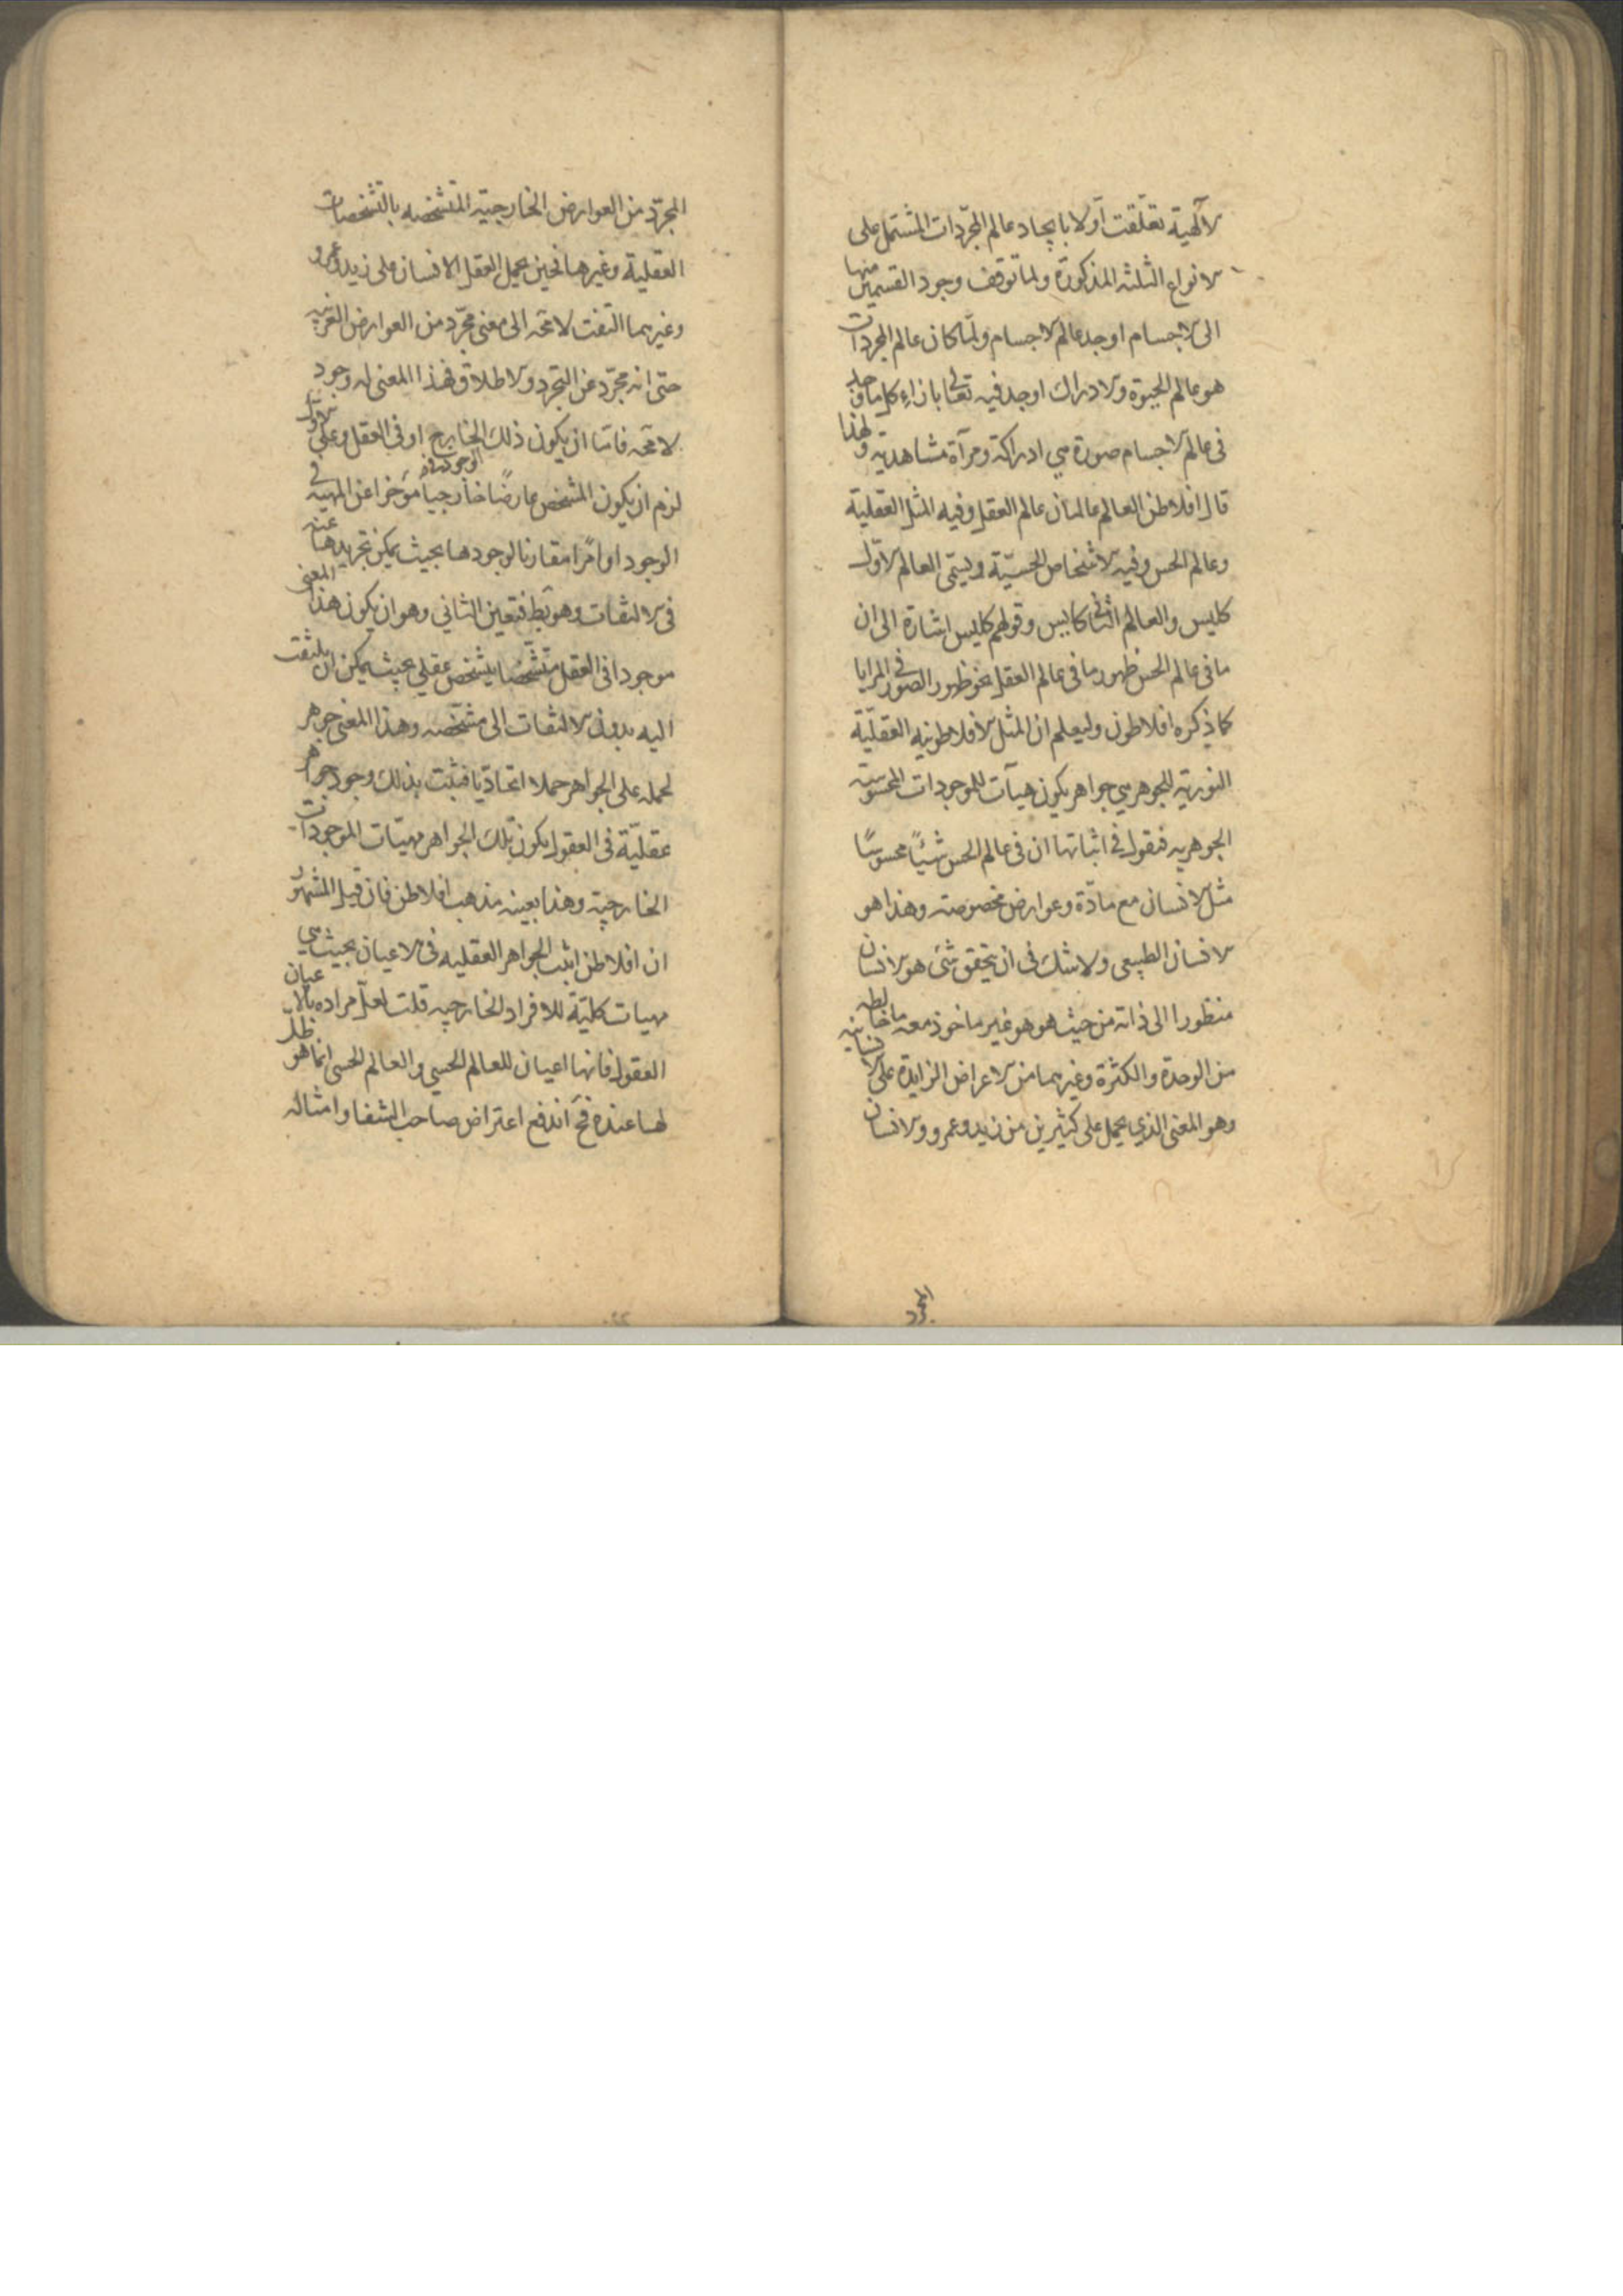 الآلهية تعلّقت أولا بايجاد عالم المجرّدات المشتمل على
الانواع الثلثه المذكورة ولما توقف وجود القسمين منها
الى الاجسام اوجد عالم الاجسام ولما كان عالم المجردات
هو عالم الحيوة والادراك اوجد فيه تعالى بازاء كل ما وجد
فى عالم الاجسام صورة هي ادراكه ومرآة مشاهدته ولهذا
قال افلاطن العالم عالمان عالم العقل وفيه المثل العقلية
وعالم الحس وفيه الاشخاص الحسيّة ويسمى العالم الاول
كليس والعالم الثانى كايس وقولهم كليس اشارة الى ان
ما فى عالم الحس ظهور ما فى عالم العقل نحو ظهور الصور فى المرايا
كما ذكره افلاطون وليعلم ان المثل الافلاطونيه العقليّة
النورية الجوهر هي جواهر يكون هيآت للموجودات المحسوسة
الجوهريه فنقول فى اثباتها ان فى عالم الحس شيئاً محسوسًا
مثل الانسان مع مادّة وعوارض مخصوصة وهذا هو
الانسان الطبيعى ولا شك فى ان يتحقق شئ هو الانسان
منظورا الى ذاته من حيث هو هو غير ماخوذ معه ما خالطه
من الوحدة والكثرة وغيرهما من الاعراض الزايدة على الانسانيه
وهو المعنى الذي يحمل على كثيرين من زيد وعمرو والانسان
المجرد
المجرّد من العوارض الخارجيّة المتشخصه بالتشخصات
العقلية وغيرها فحين يحمل العقل الانسان على زيد وعمرو
وغيرهما التفت لا محه الى معنى مجرّد من العوارض الغريبه
حتى انه مجرّد عن التجرد والاطلاق فهذا المعنى له وجود
لا محه فامّا ان يكون ذلك الخارج او فى العقل وعلى الاول
لزم ان يكون المشخص عارضًا خارجياً مؤخرا عن المهيه فى
الوجود او امرا مقارنا لوجودها بحيث يمكن تجريدها عنه
فى الالتفات وهو بط فتعين الثاني وهو ان يكون هذا المعنى
موجودا فى العقل متشخّصا بتشخص عقلي بحيث يمكن ان يلتفت
اليه بدون الالتفات الى مشخّصه وهذا المعنى جوهر
لحمله على الجواهر حملا اتحاديّا فثبت بذلك وجود جواهر
عقليّة فى العقول يكون تلك الجواهر مهيّات الموجودات
الخارجيّة وهذا بعينه مذهب افلاطن فان قيل المشهور
ان افلاطن اثبت الجواهر العقليه فى الاعيان بحيث هي
مهيات كليّة للافراد الخارجيه قلت لعلّ مراده بالاعيان
العقول فانها اعيان للعالم الحسي والعالم الحسى انما هو ظلّ
لها عنده فح اندفع اعتراض صاحب الشفا وامثاله